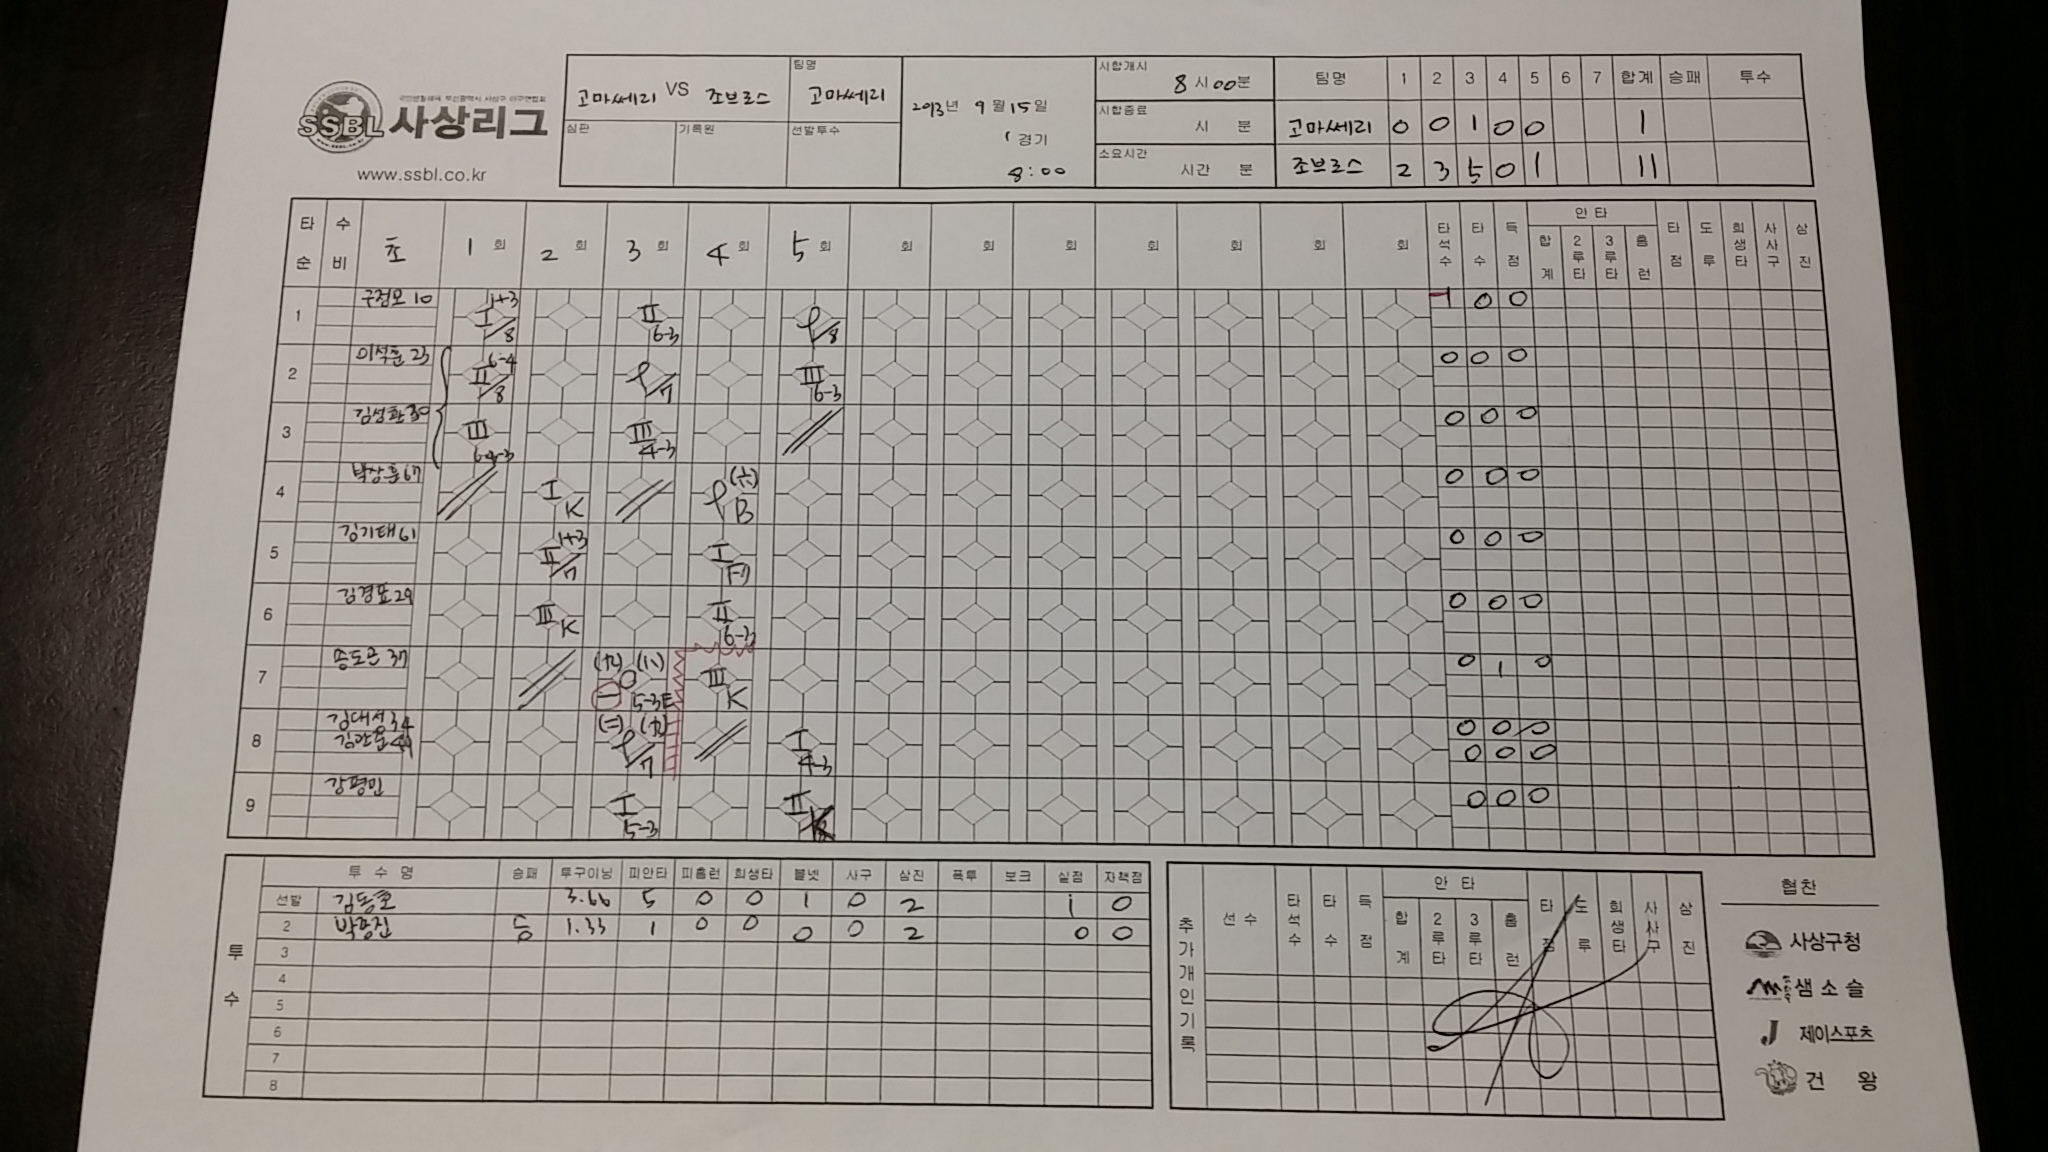 SSBL 사상리그
www.ssbl.co.kr
고마쎄리 VS 조브로스
팀명
고마쎄리
심판
기록원
선발투수
2013년 9월 15일
1 경기
8:00
시합개시
8 시 00 분
시합종료
시 분
소요시간
시간 분
팀명 1 2 3 4 5 6 7 합계 승패 투수
고마쎄리 0 0 1 0 0 1
조브로스 2 3 5 0 1 11
타순 수비 초 1 회 2 회 3 회 4 회 5 회 회 회 회 회 회 회 회 타석수 타수 득점 안타 합계 2루타 3루타 홈런 타점 도루 희생타 사사구 삼진
1 구정모 10 I 1+3 /8 II 6-3 /8 0 0
2 이석훈 23 II 6-4 /8 /7 III 6-3 0 0 0
3 김성환 30 III 6-4-3 III 4-3 0 0 0
4 박상훈 67 I K B 0 0 0
5 김기태 61 II 1+3 /7 I 0 0 0
6 김경표 29 III K II 6-3 0 0 0
7 송도근 37 5-3E III K 0 1 0
8 김대성 34 /7 I 4-3 0 0 0
0 0 0
9 강평민 I 5-3 II 0 0 0
투수
투수명 승패 투구이닝 피안타 피홈런 희생타 볼넷 사구 삼진 폭투 보크 실점 자책점
선발 김동호 3.66 5 0 0 1 0 2 1 0
2 승 1.33 1 0 0 0 0 2 0 0
3
4
5
6
7
8
추가개인기록
선수 타석수 타수 득점 안타 합계 2루타 3루타 홈런 타점 도루 희생타 사사구 삼진
협찬
사상구청
샘소슬
J 제이스포츠
건왕